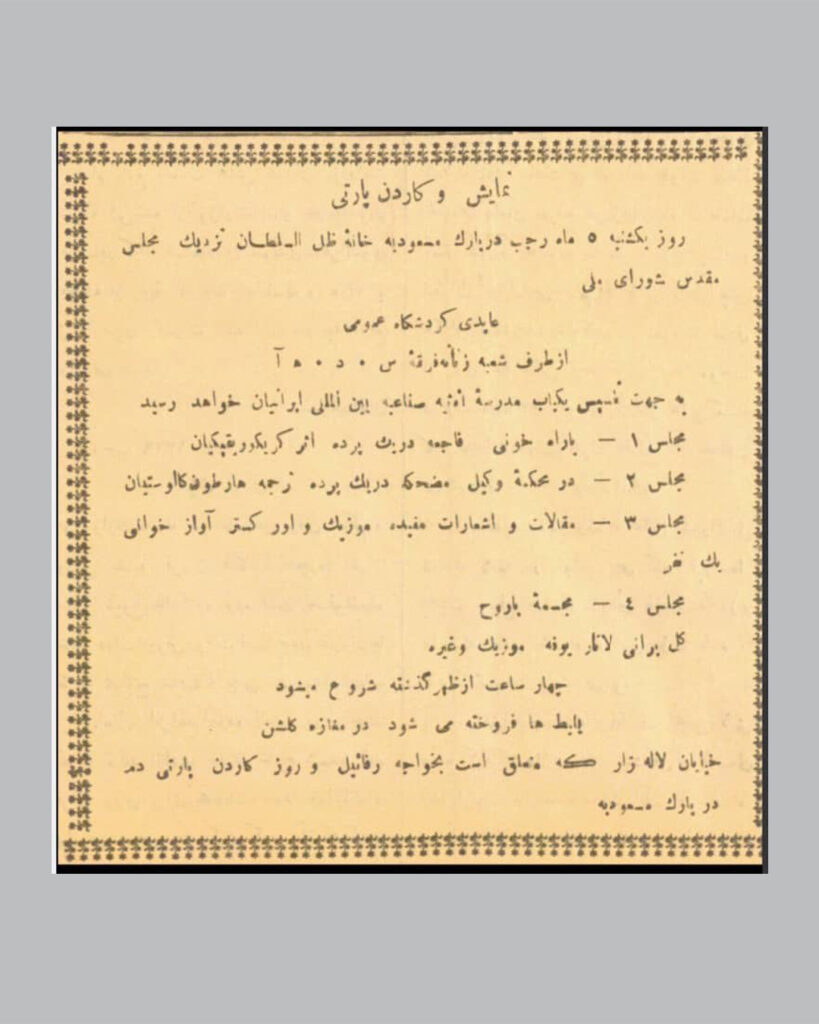 نمایش و کاردن پارتی
روز یکشنبه ۵ ماه رجب در پارك مسعودیه خانهٔ ظل السلطان نزدیك مجلس
مقدس شورای ملی
عایدی گردشگاه عمومی
از طرف شعبه زنانه فرقهٔ س ۰ د ۰ ه آ
به جهت تسیس یکباب مدرسهٔ صناعیه بین المللی ایرانیان خواهد رسید
مجلس ۱ — پاراه خونی فاجعه در یك پرده اثر
مجلس ۲ — در محکمهٔ وکیل مضحکه در یك پرده ترجمه هارطون گالوستیان
مجلس ۳ — مقالات و اشعارات مفیده موزیك و اور کستر آواز خوانی
یك نفر
مجلس ٤ — مجسمهٔ باروح
گل پرانی لاتار بوفه موزیك وغیره
چهار ساعت از ظهر گذشته شروع میشود
پابط ها فروخته می شود در مغازه گلشن
خیابان لاله زار که متعلق است بخواجه رفائیل و روز کاردن پارتی دم
در پارك مسعودیه